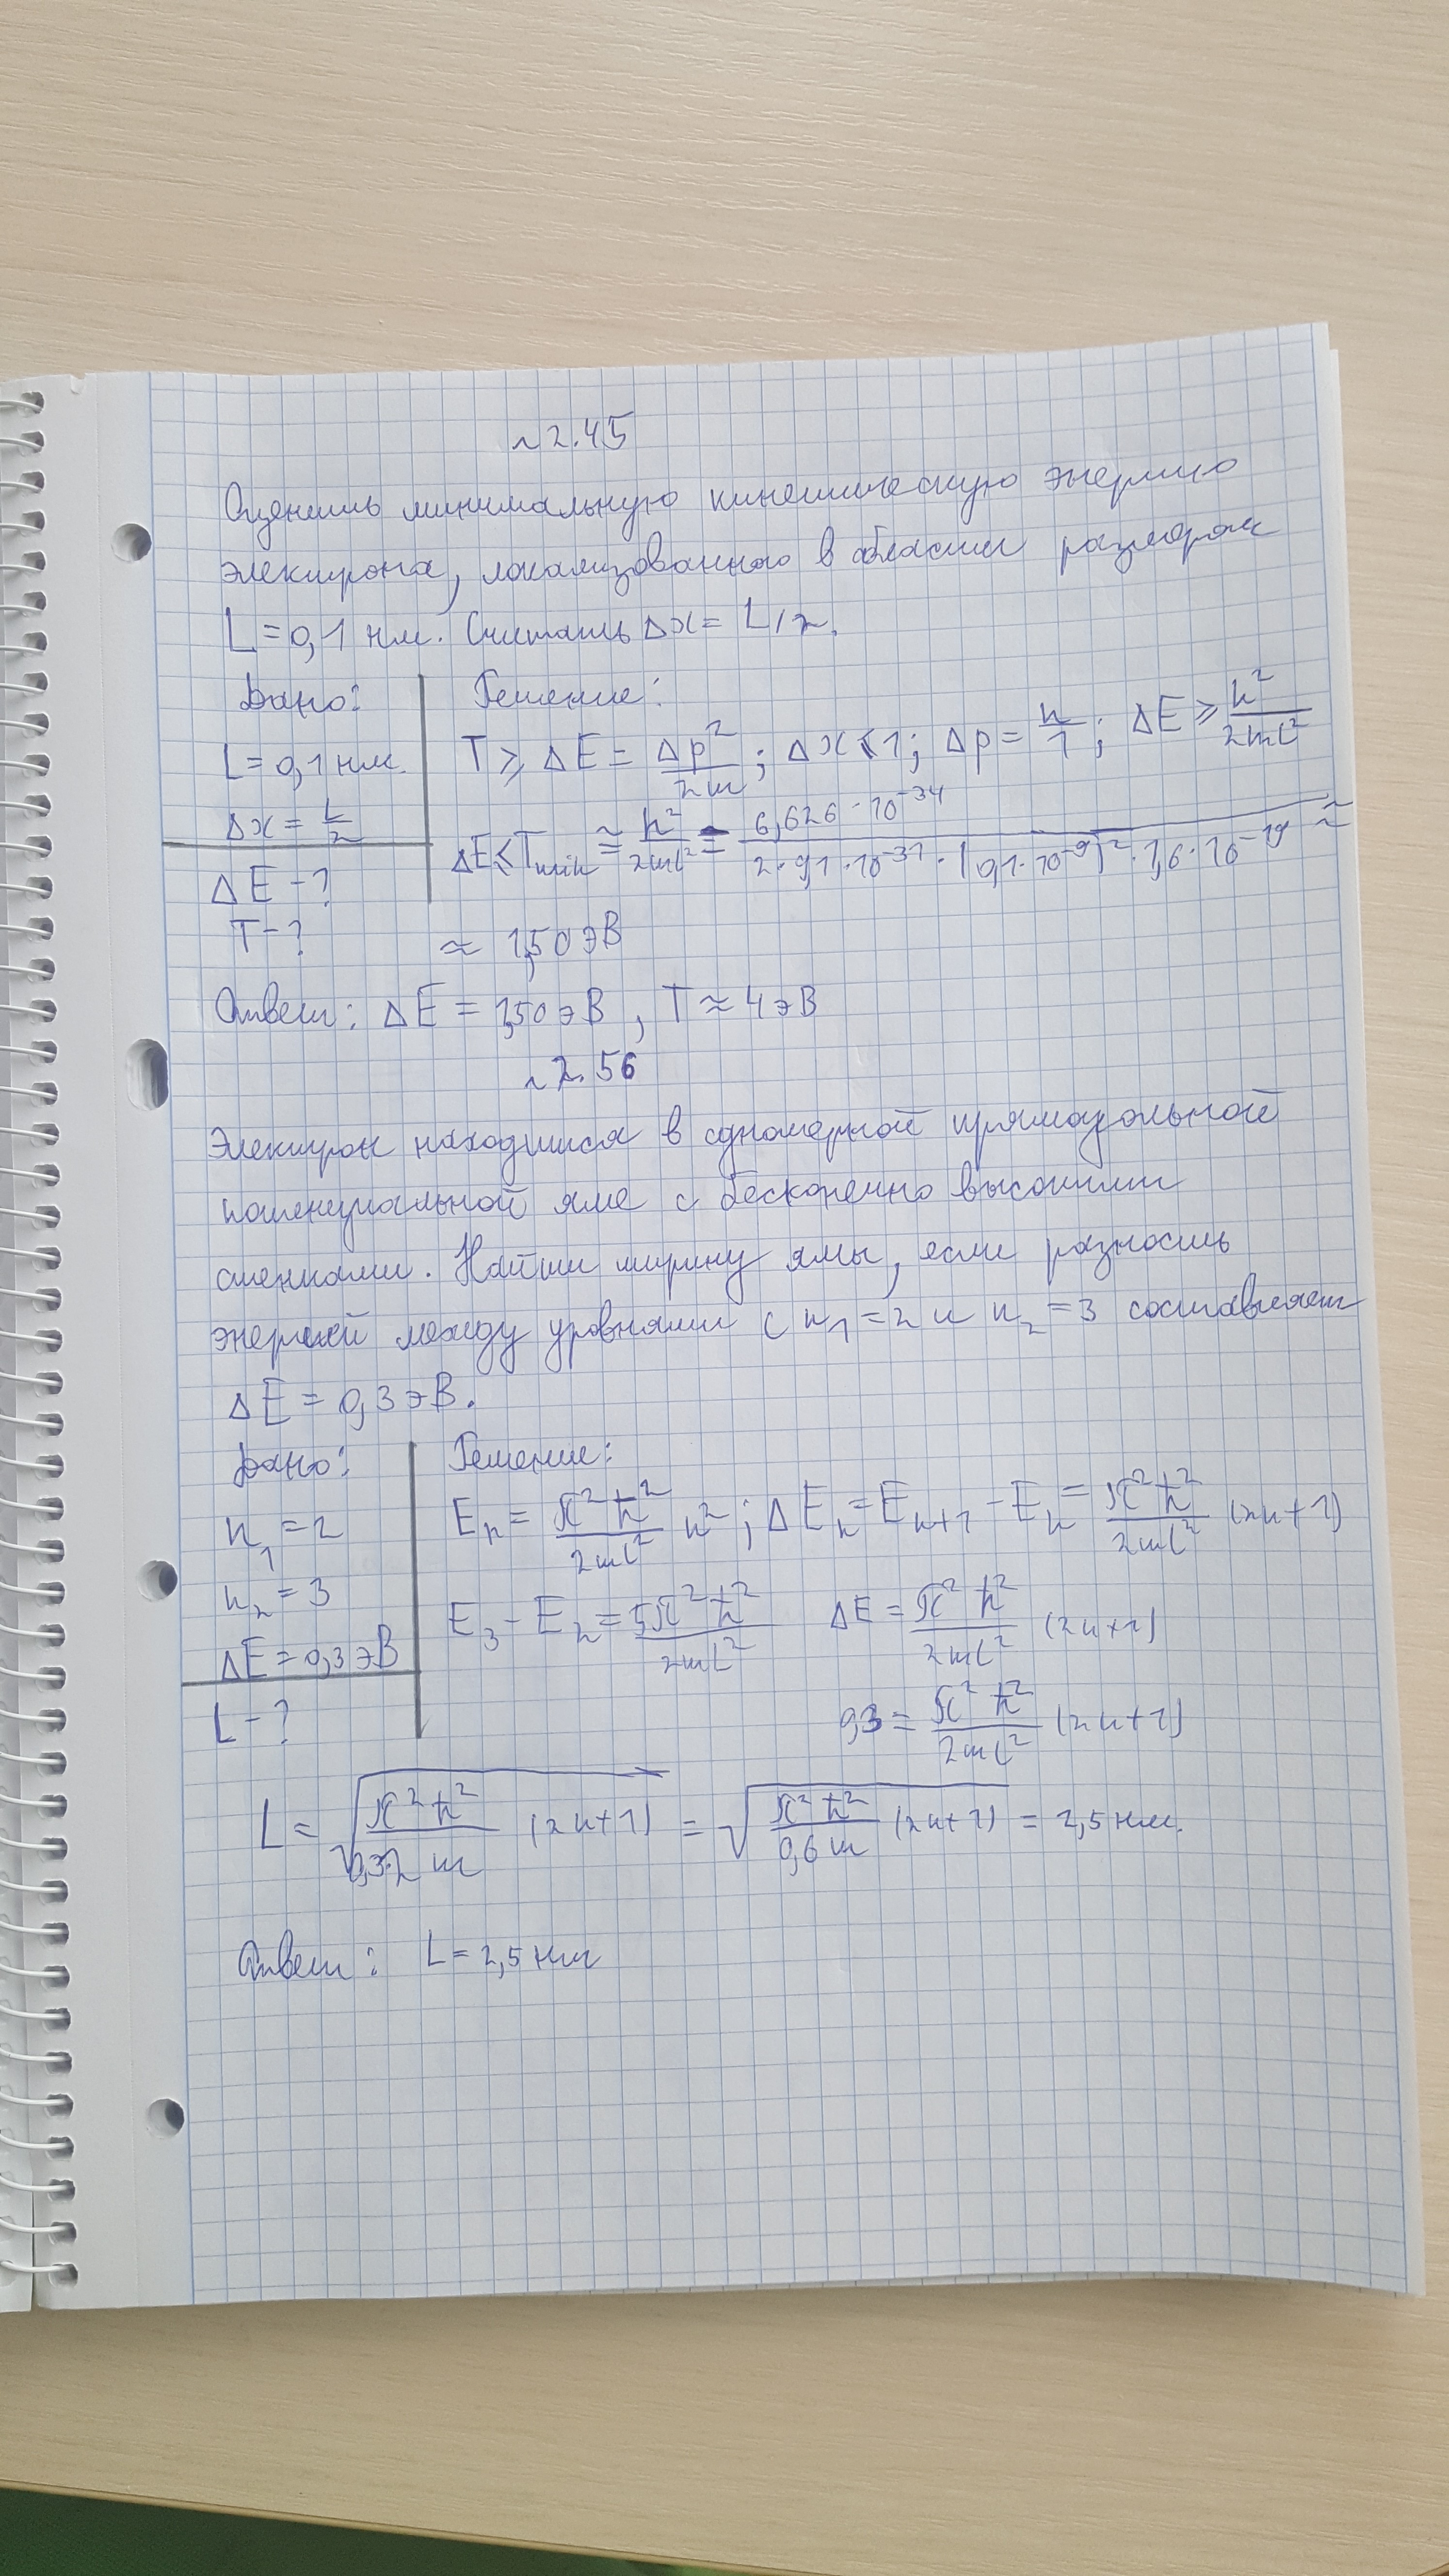 ~ 2.45
Оценить минимальную кинетическую энергию
электрона, локализованного в области размером
L = 0,1 нм. Считать Δx = L/2.
Дано: Решение:
L = 0,1 нм. T ⩾ ΔE = Δp²/2m ; Δx ⩽ 1; Δp = h/1 ; ΔE ⩾ h²/2ml²
Δx = L/2 ΔE ⩽ Tmin ≈ h²/2ml² = 6,626·10⁻³⁴/2·9,1·10⁻³¹·(0,1·10⁻⁹)²·1,6·10⁻¹⁹ ≈
ΔE - ?
T - ? ≈ 1,50 эВ
Ответ: ΔE = 1,50 эВ, T ≈ 4 эВ
~ 2.56
Электрон находится в одномерной прямоугольной
потенциальной яме с бесконечно высокими
стенками. Найти ширину ямы, если разность
энергий между уровнями с n₁ = 2 и n₂ = 3 составляет
ΔE = 0,3 эВ.
Дано: Решение:
n₁ = 2 Eₙ = π²ħ²/2ml² n² ; ΔEₙ = Eₙ₊₁ - Eₙ = π²ħ²/2ml² (2n+1)
n₂ = 3 E₃ - E₂ = 5π²ħ²/2ml² ΔE = π²ħ²/2ml² (2n+1)
ΔE = 0,3 эВ
L - ? 0,3 = π²ħ²/2ml² (2n+1)
L = √(π²ħ²/0,3·2 m (2n+1)) = √(π²ħ²/0,6 m (2n+1)) = 2,5 нм.
Ответ: L = 2,5 нм